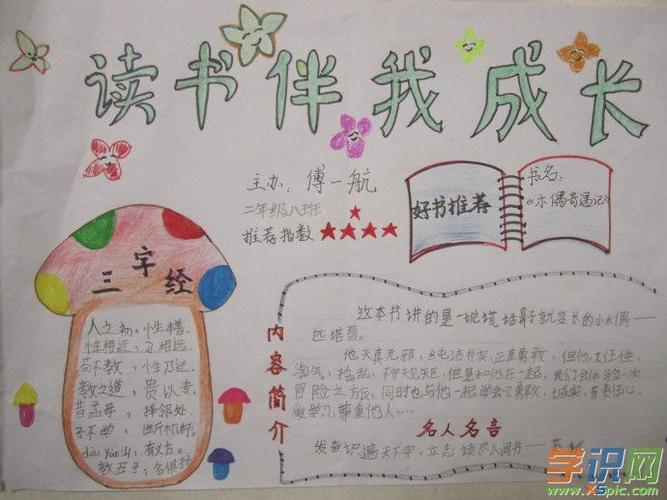 读书伴我成长
主办：傅一航
二年级八班
推荐指数
好书推荐
书名：
《木偶奇遇记》
三字经
人之初，性本善。
性相近，习相远。
苟不教，性乃迁。
教之道，贵以专。
昔孟母，择邻处。
子不学，断机杼。
dòu yān shān，有义方。
教五子，名俱扬
内容简介
这本书讲的是一说谎话鼻子就变长的小木偶——
匹诺曹。
他天真无邪，
正直勇敢，但他又任性，
淘气，捣乱，
但是和他在一起，我们会体验一次
冒险之旅，同时也与他一起学会了勇敢，诚实，有责任心，
爱学习，尊重他人……
名人名言
发奋识遍天下字，立志读尽人间书——苏轼
学识网
www.xspic.com